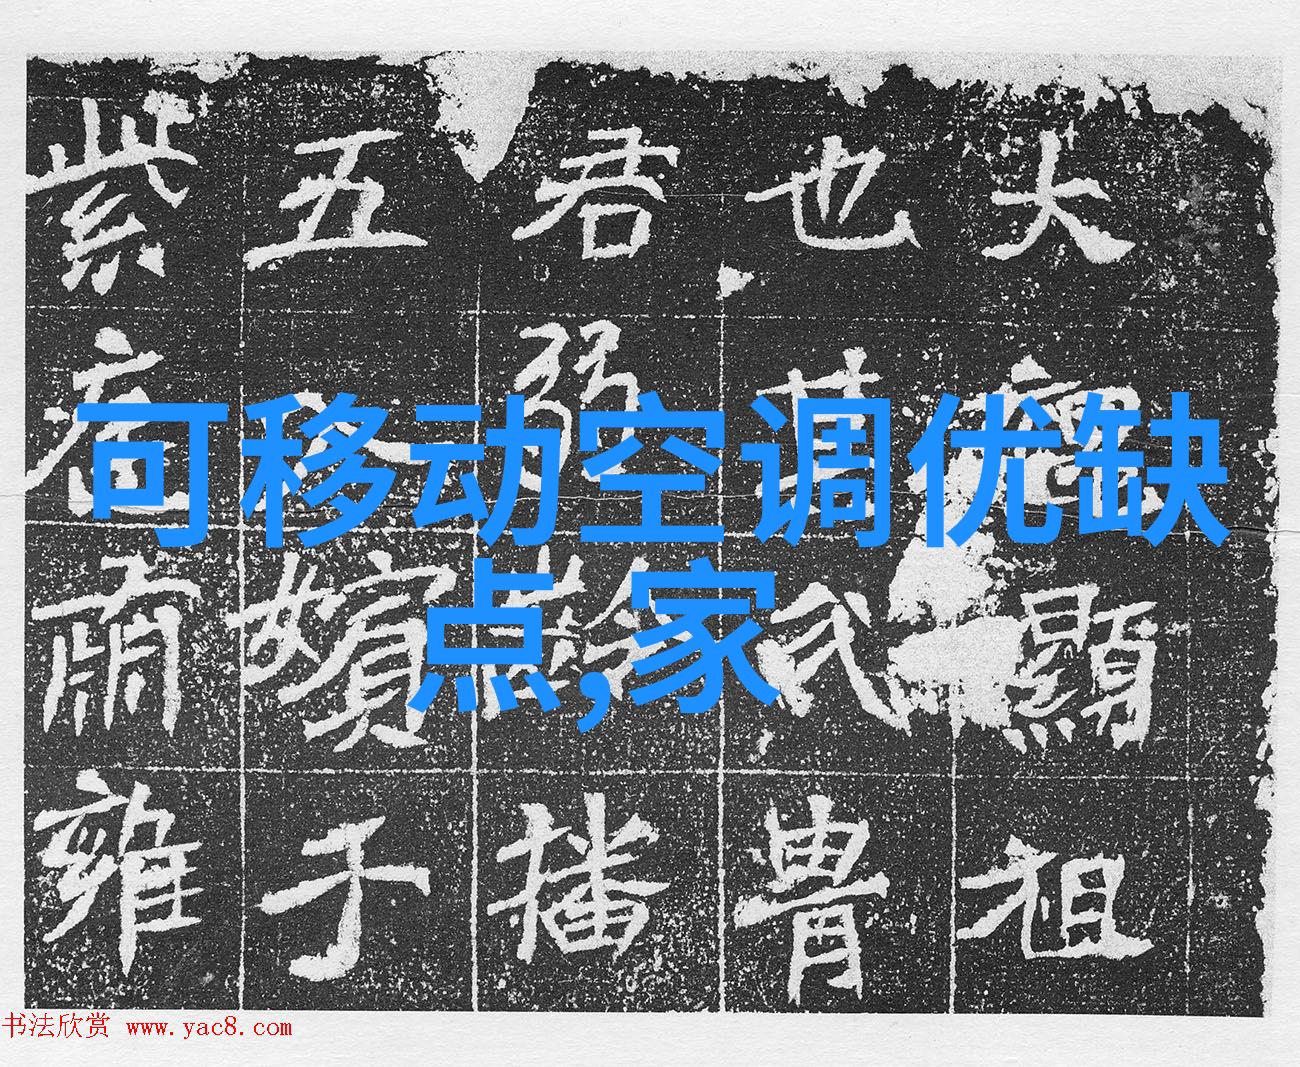 可移动空调优缺
点,家
大顯祖
也其氏胄
君弱播
五嬪于
紫肅雍
书法欣赏 www.yac8.com